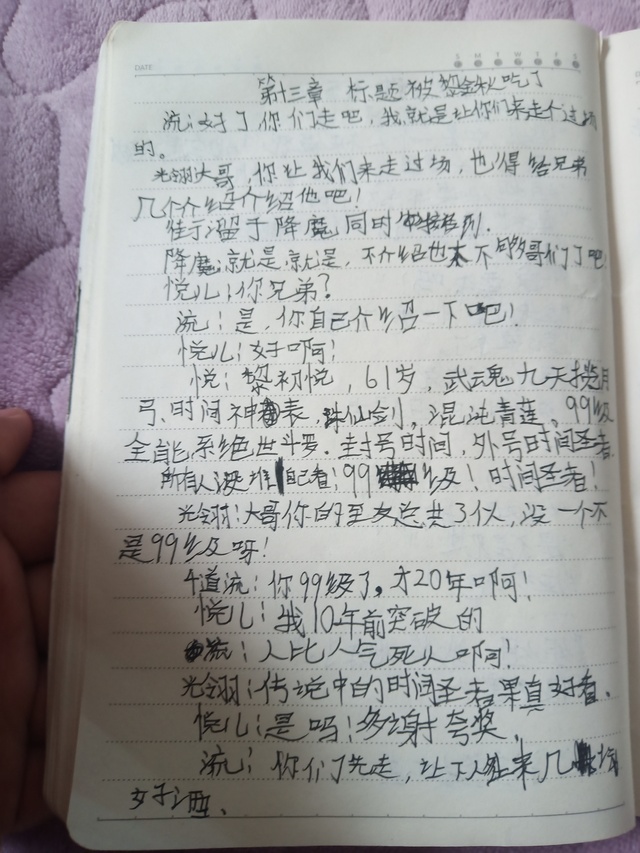 DATE
S M T W T F S
第十三章 标题被黎金秋吃了
流:好了你们走吧,我就是让你们来走个过场
的。
光翎:大哥,你让我们来走过场,也得给兄弟
几个介绍介绍他吧!
于 降魔 同时
降魔:就是,就是,不介绍也太不够哥们了吧!
悦儿:你兄弟?
流:是,你自己介绍一下吧!
悦儿:好啊!
悦:黎初悦,61岁,武魂九天揽月
弓、时间神表、诛仙剑、混沌青莲。99级
全能系绝世斗罗.封号时间,外号时间圣者
所有人 :99级!时间圣者!
光翎:大哥你的至友总共3个,没一个不
是99级呀!
千道流:你99级了,才20年啊!
悦儿:我10年前突破的
流:人比人气死人啊!
光翎:传说中的时间圣者果真好看.
悦儿:是吗!多谢夸奖.
流:你们先走,让下人送来几坛
好酒.